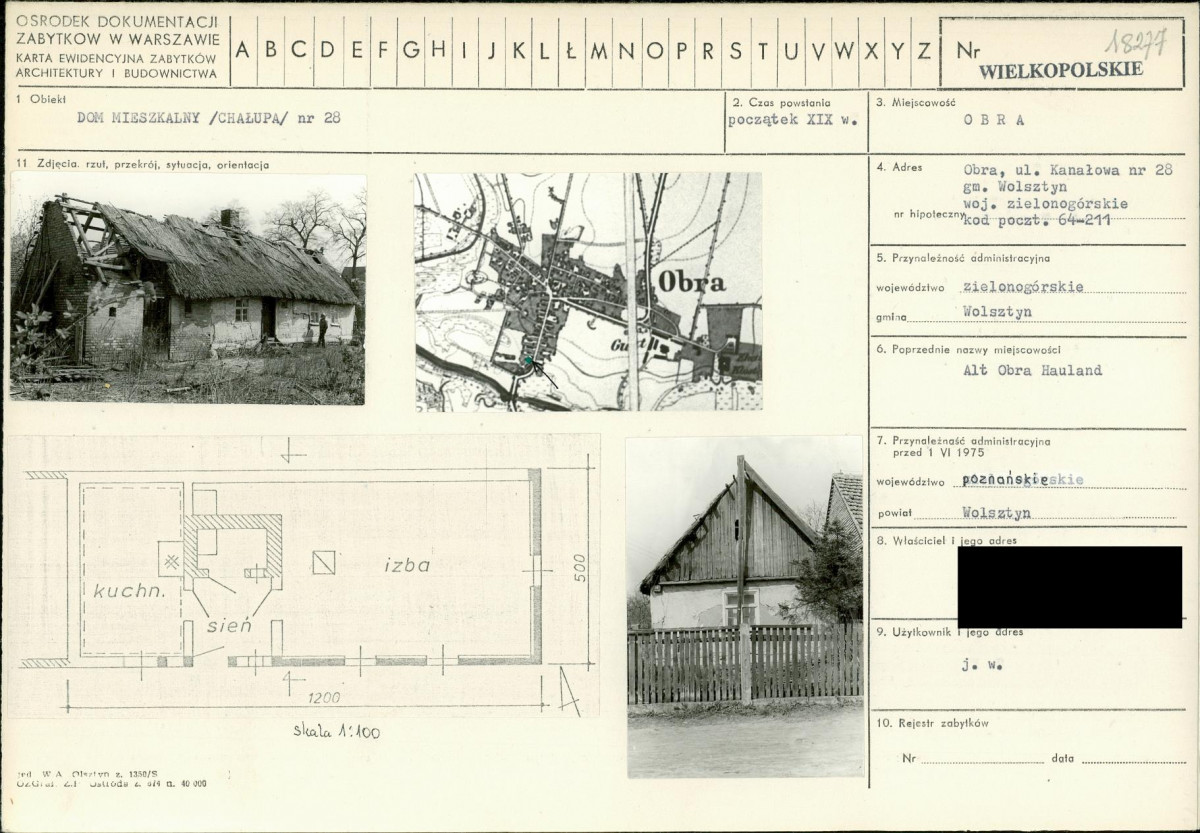 OSRODEK DOKUMENTACJI
ZABYTKOW W WARSZAWIE
KARTA EWIDENCYJNA ZABYTKÓW
ARCHITEKTURY I BUDOWNICTWA
A B C D E F G H I J K L Ł M N O P R S T U V W X Y Z
Nr 18277
WIELKOPOLSKIE
1 Obiekt
DOM MIESZKALNY /CHAŁUPA/ nr 28
2. Czas powstania
początek XIX w.
3. Miejscowość
O B R A
11 Zdjęcia. rzut, przekrój, sytuacja, orientacja
4. Adres
Obra, ul. Kanałowa nr 28
gm. Wolsztyn
woj. zielonogórskie
nr hipoteczny
kod poczt. 64-211
5. Przynależność administracyjna
województwo zielonogórskie
gmina Wolsztyn
6. Poprzednie nazwy miejscowości
Alt Obra Hauland
7. Przynależność administracyjna
przed 1 VI 1975
województwo poznańskie
powiat Wolsztyn
8. Właściciel i jego adres
9. Użytkownik i jego adres
j. w.
10. Rejestr zabytków
Nr data
Obra
kuchn.
sień
izba
500
1200
skala 1:100
W.A. Olsztyn z. 1350/S
40 000